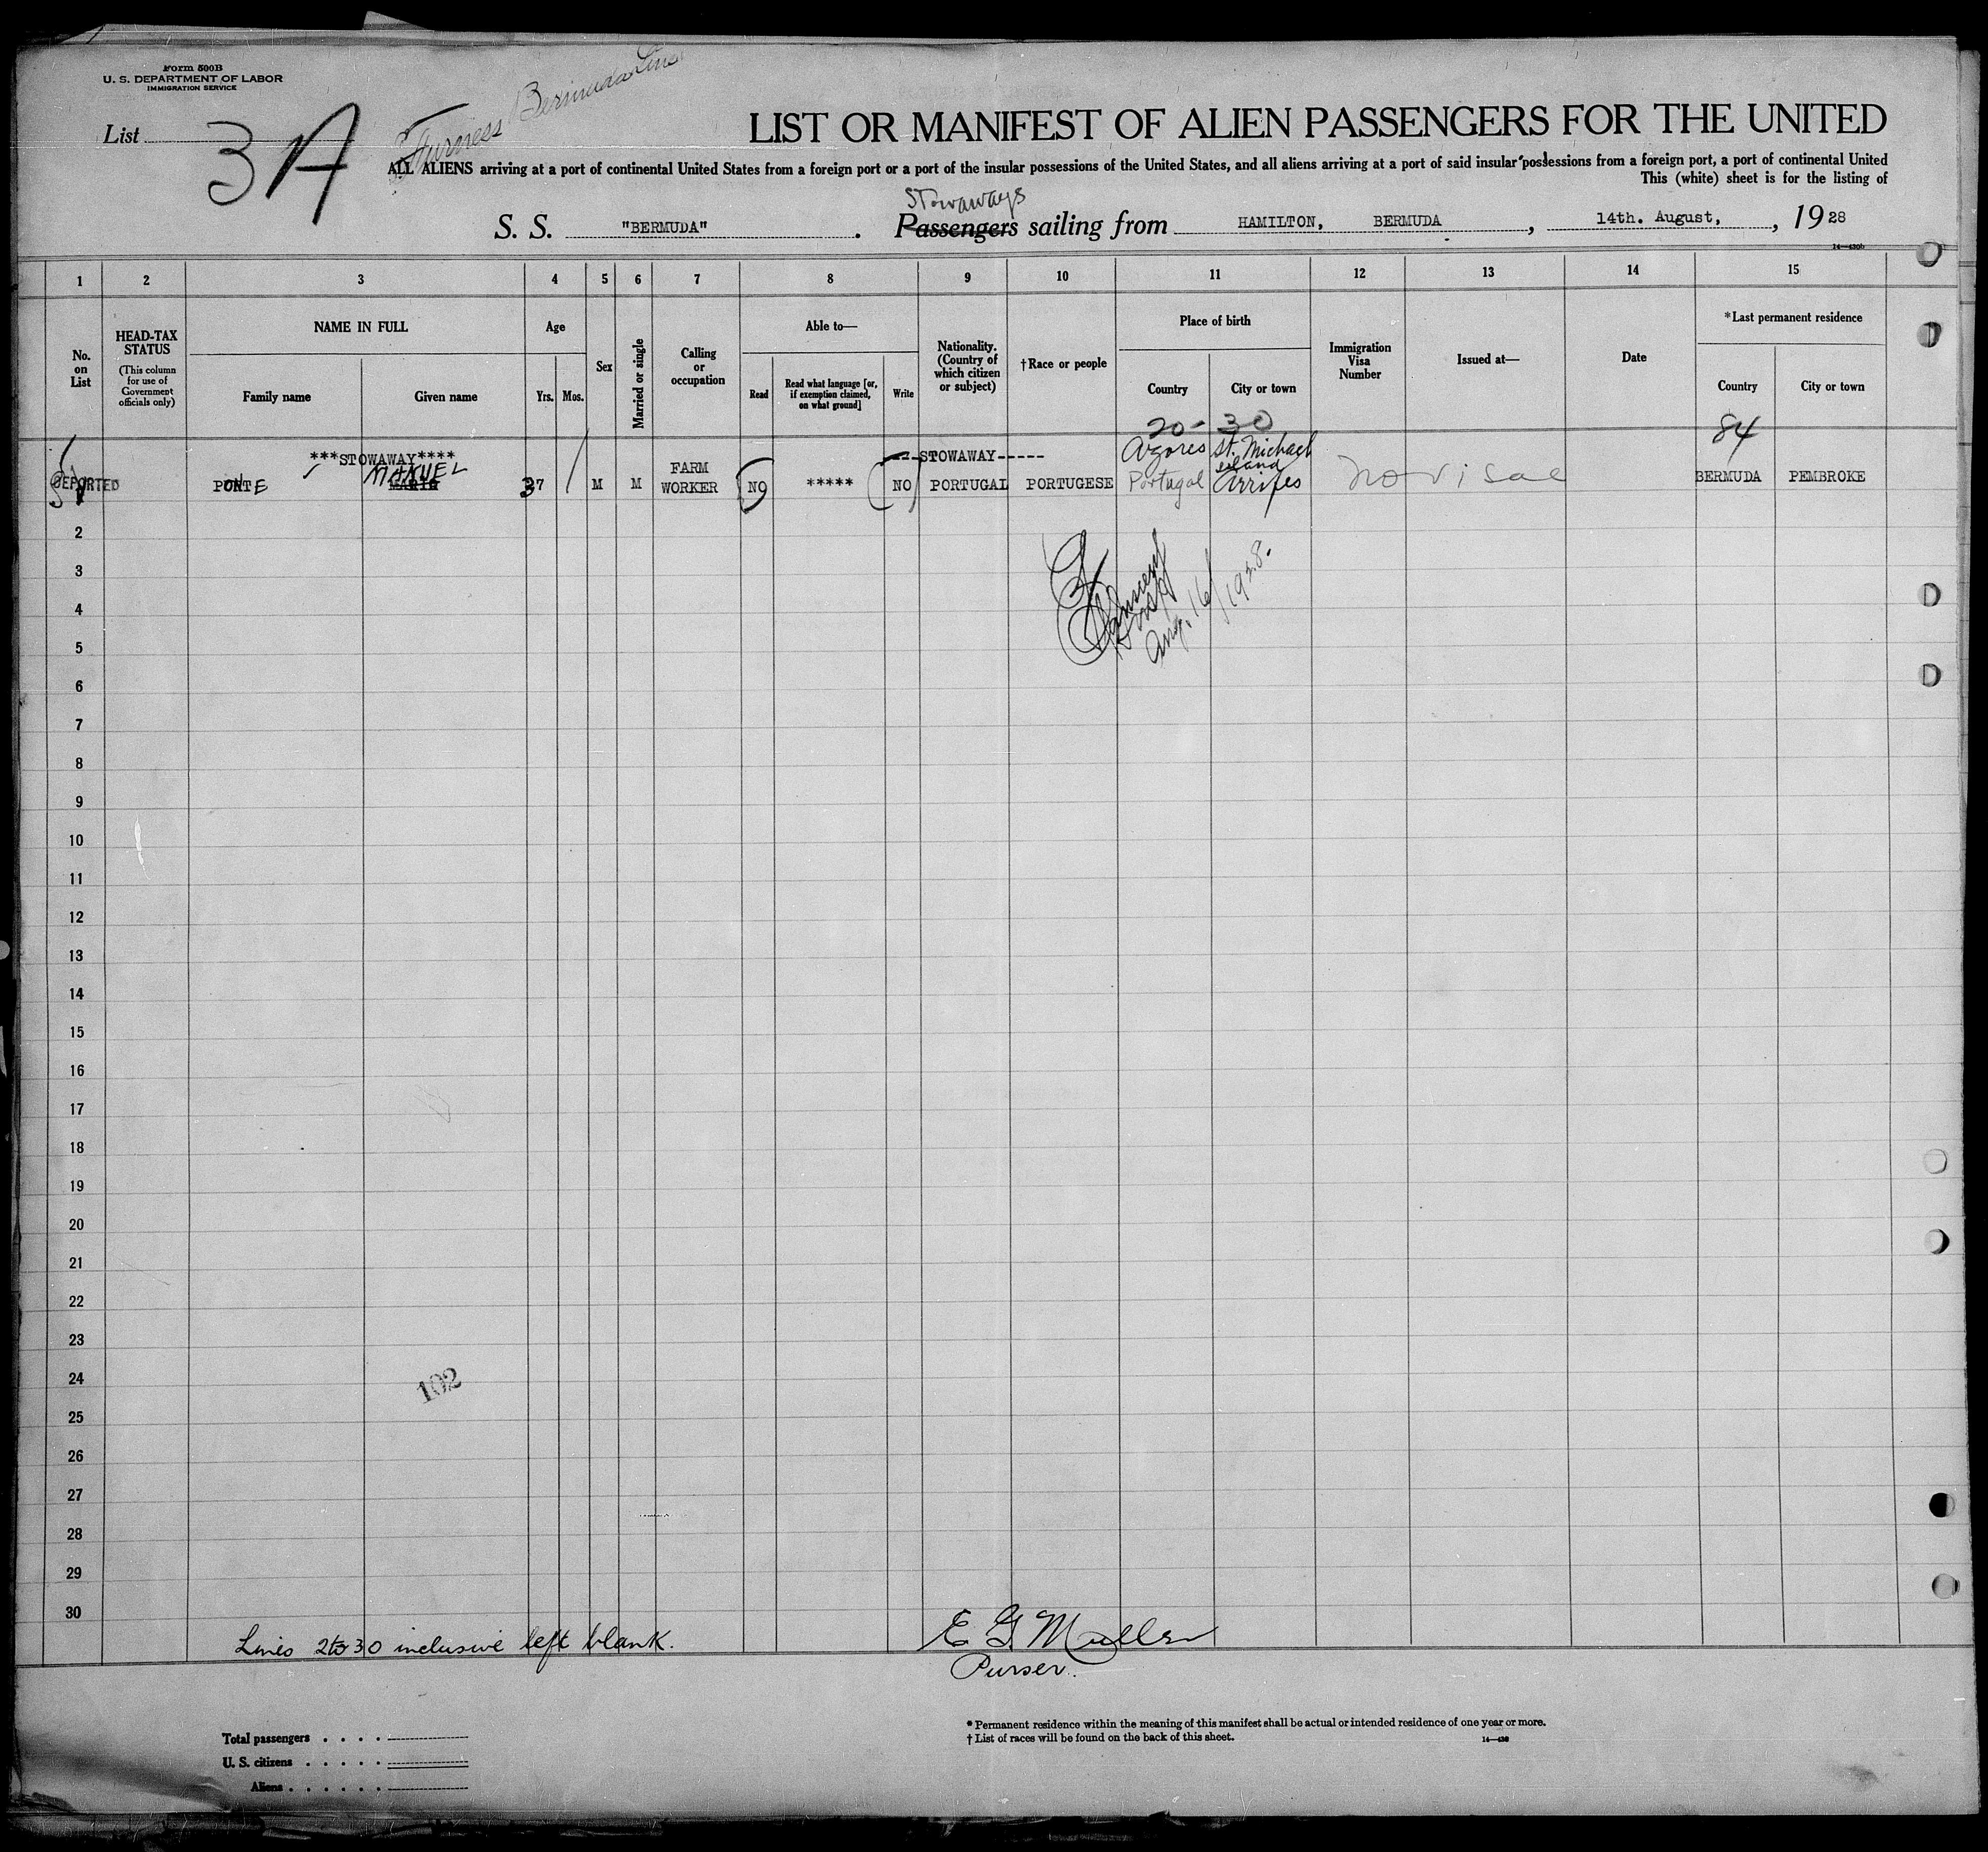 Form 500B
U. S. DEPARTMENT OF LABOR
IMMIGRATION SERVICE
List 3A
Furness Bermuda Line
LIST OR MANIFEST OF ALIEN PASSENGERS FOR THE UNITED
ALL ALIENS arriving at a port of continental United States from a foreign port or a port of the insular possessions of the United States, and all aliens arriving at a port of said insular possessions from a foreign port, a port of continental United
This (white) sheet is for the listing of
Stowaways
S. S. "BERMUDA". Passengers sailing from HAMILTON, BERMUDA, 14th. August, , 1928
14—430b
1 2 3 4 5 6 7 8 9 10 11 12 13 14 15
No. on List
HEAD-TAX STATUS
(This column for use of Government officials only)
NAME IN FULL
Family name
Given name
Age
Yrs.
Mos.
Sex
Married or single
Calling or occupation
Able to—
Read
Read what language [or, if exemption claimed, on what ground]
Write
Nationality. (Country of which citizen or subject)
†Race or people
Place of birth
Country
City or town
Immigration Visa Number
Issued at—
Date
*Last permanent residence
Country
City or town
20- 30
84
***STOWAWAY**** ----STOWAWAY----- Azores St. Michael island
DEPORTED PONTE MANUEL 37 M M FARM WORKER NO ***** NO PORTUGAL PORTUGESE Portugal Arrifes no visae BERMUDA PEMBROKE
2
3
Aug. 16/1928.
4
5
6
7
8
9
10
11
12
13
14
15
16
17
18
19
20
21
22
23
24
102
25
26
27
28
29
30
Lines 2 to 30 inclusive left blank.
E G Muller
Purser.
Total passengers . . . .
U. S. citizens . . . . .
Aliens . . . . . .
* Permanent residence within the meaning of this manifest shall be actual or intended residence of one year or more.
† List of races will be found on the back of this sheet.
14—430